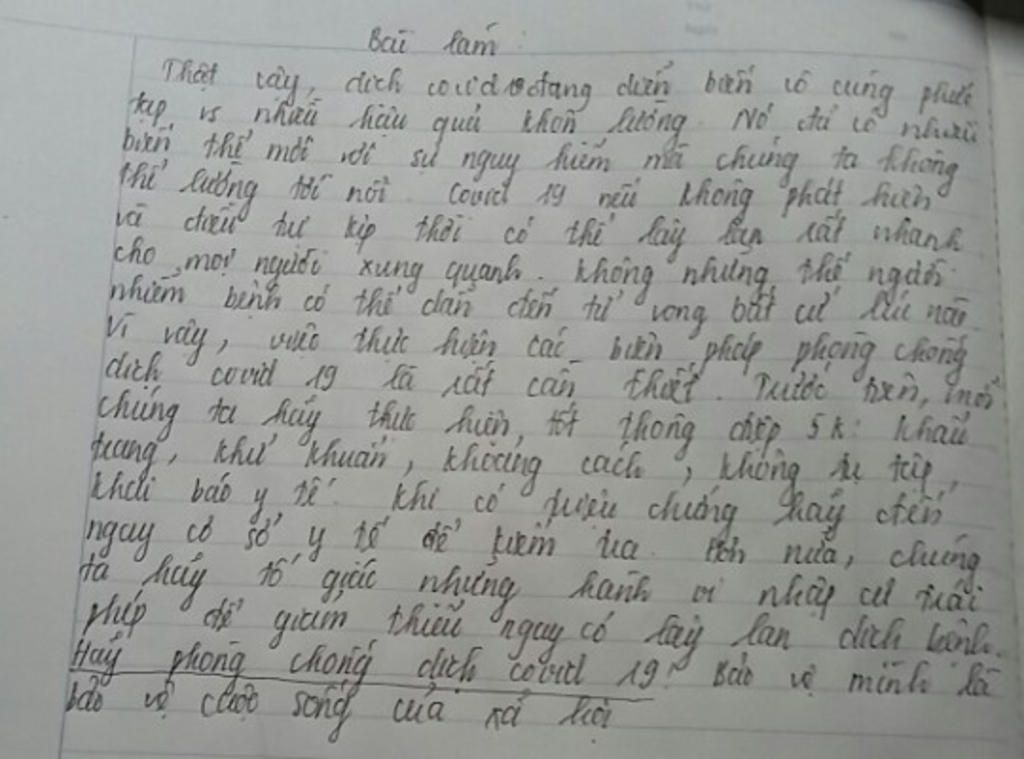 Bài làm:
Thật vậy, dịch covid đang diễn biến vô cùng phức
tạp vs nhiều hậu quả khôn lường. Nó đã có nhiều
biến thể mới với sự nguy hiểm mà chúng ta không
thể lường tới nổi. Covid 19 nếu không phát hiện
và điều tư kịp thời có thể lây lan rất nhanh
cho mọi người xung quanh. Không những thế người
nhiễm bệnh có thể dẫn đến tử vong bất cứ lúc nào.
Vì vậy, việc thực hiện các biện pháp phòng chống
dịch covid 19 là rất cần thiết. Trước tiên, mỗi
chúng ta hãy thực hiện tốt thông điệp 5k: khẩu
trang, khử khuẩn, khoảng cách, không tụ tập,
khai báo y tế. Khi có triệu chứng hãy đến
ngay cơ sở y tế để kiểm tra. Hơn nữa, chúng
ta hãy tố giác những hành vi nhập cư trái
phép để giảm thiểu nguy cơ lây lan dịch bệnh.
Hãy phòng chống dịch covid 19! Bảo vệ mình là
bảo vệ cuộc sống của xã hội